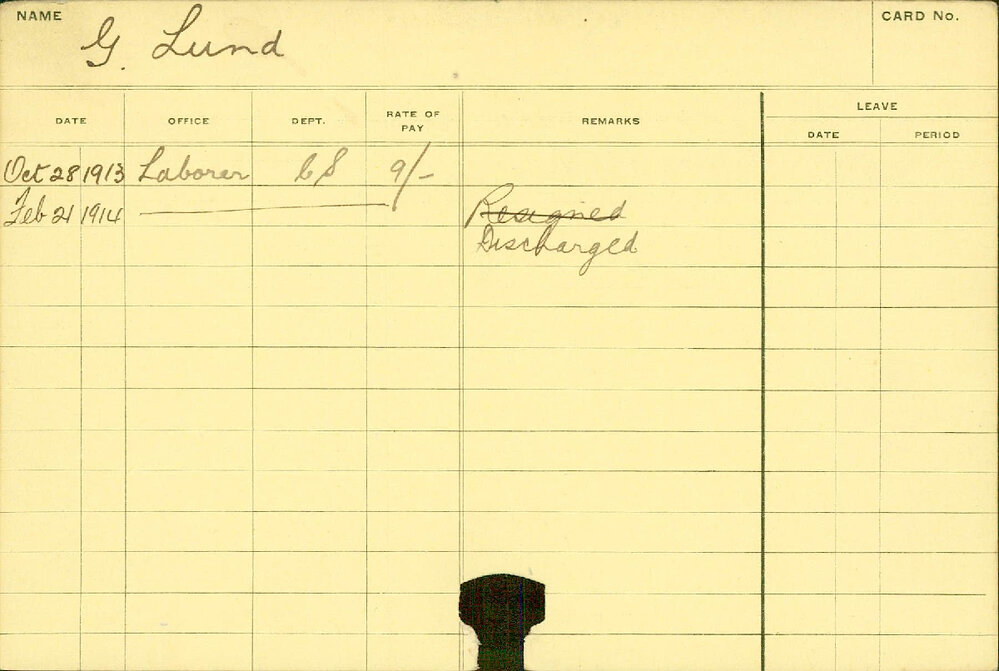 NAME G. Lund CARD No.
LEAVE
DATE OFFICE DEPT. RATE OF PAY REMARKS DATE PERIOD
Oct 28 1913 Laborer CS 9/-
Feb 21 1914 Resigned
Discharged